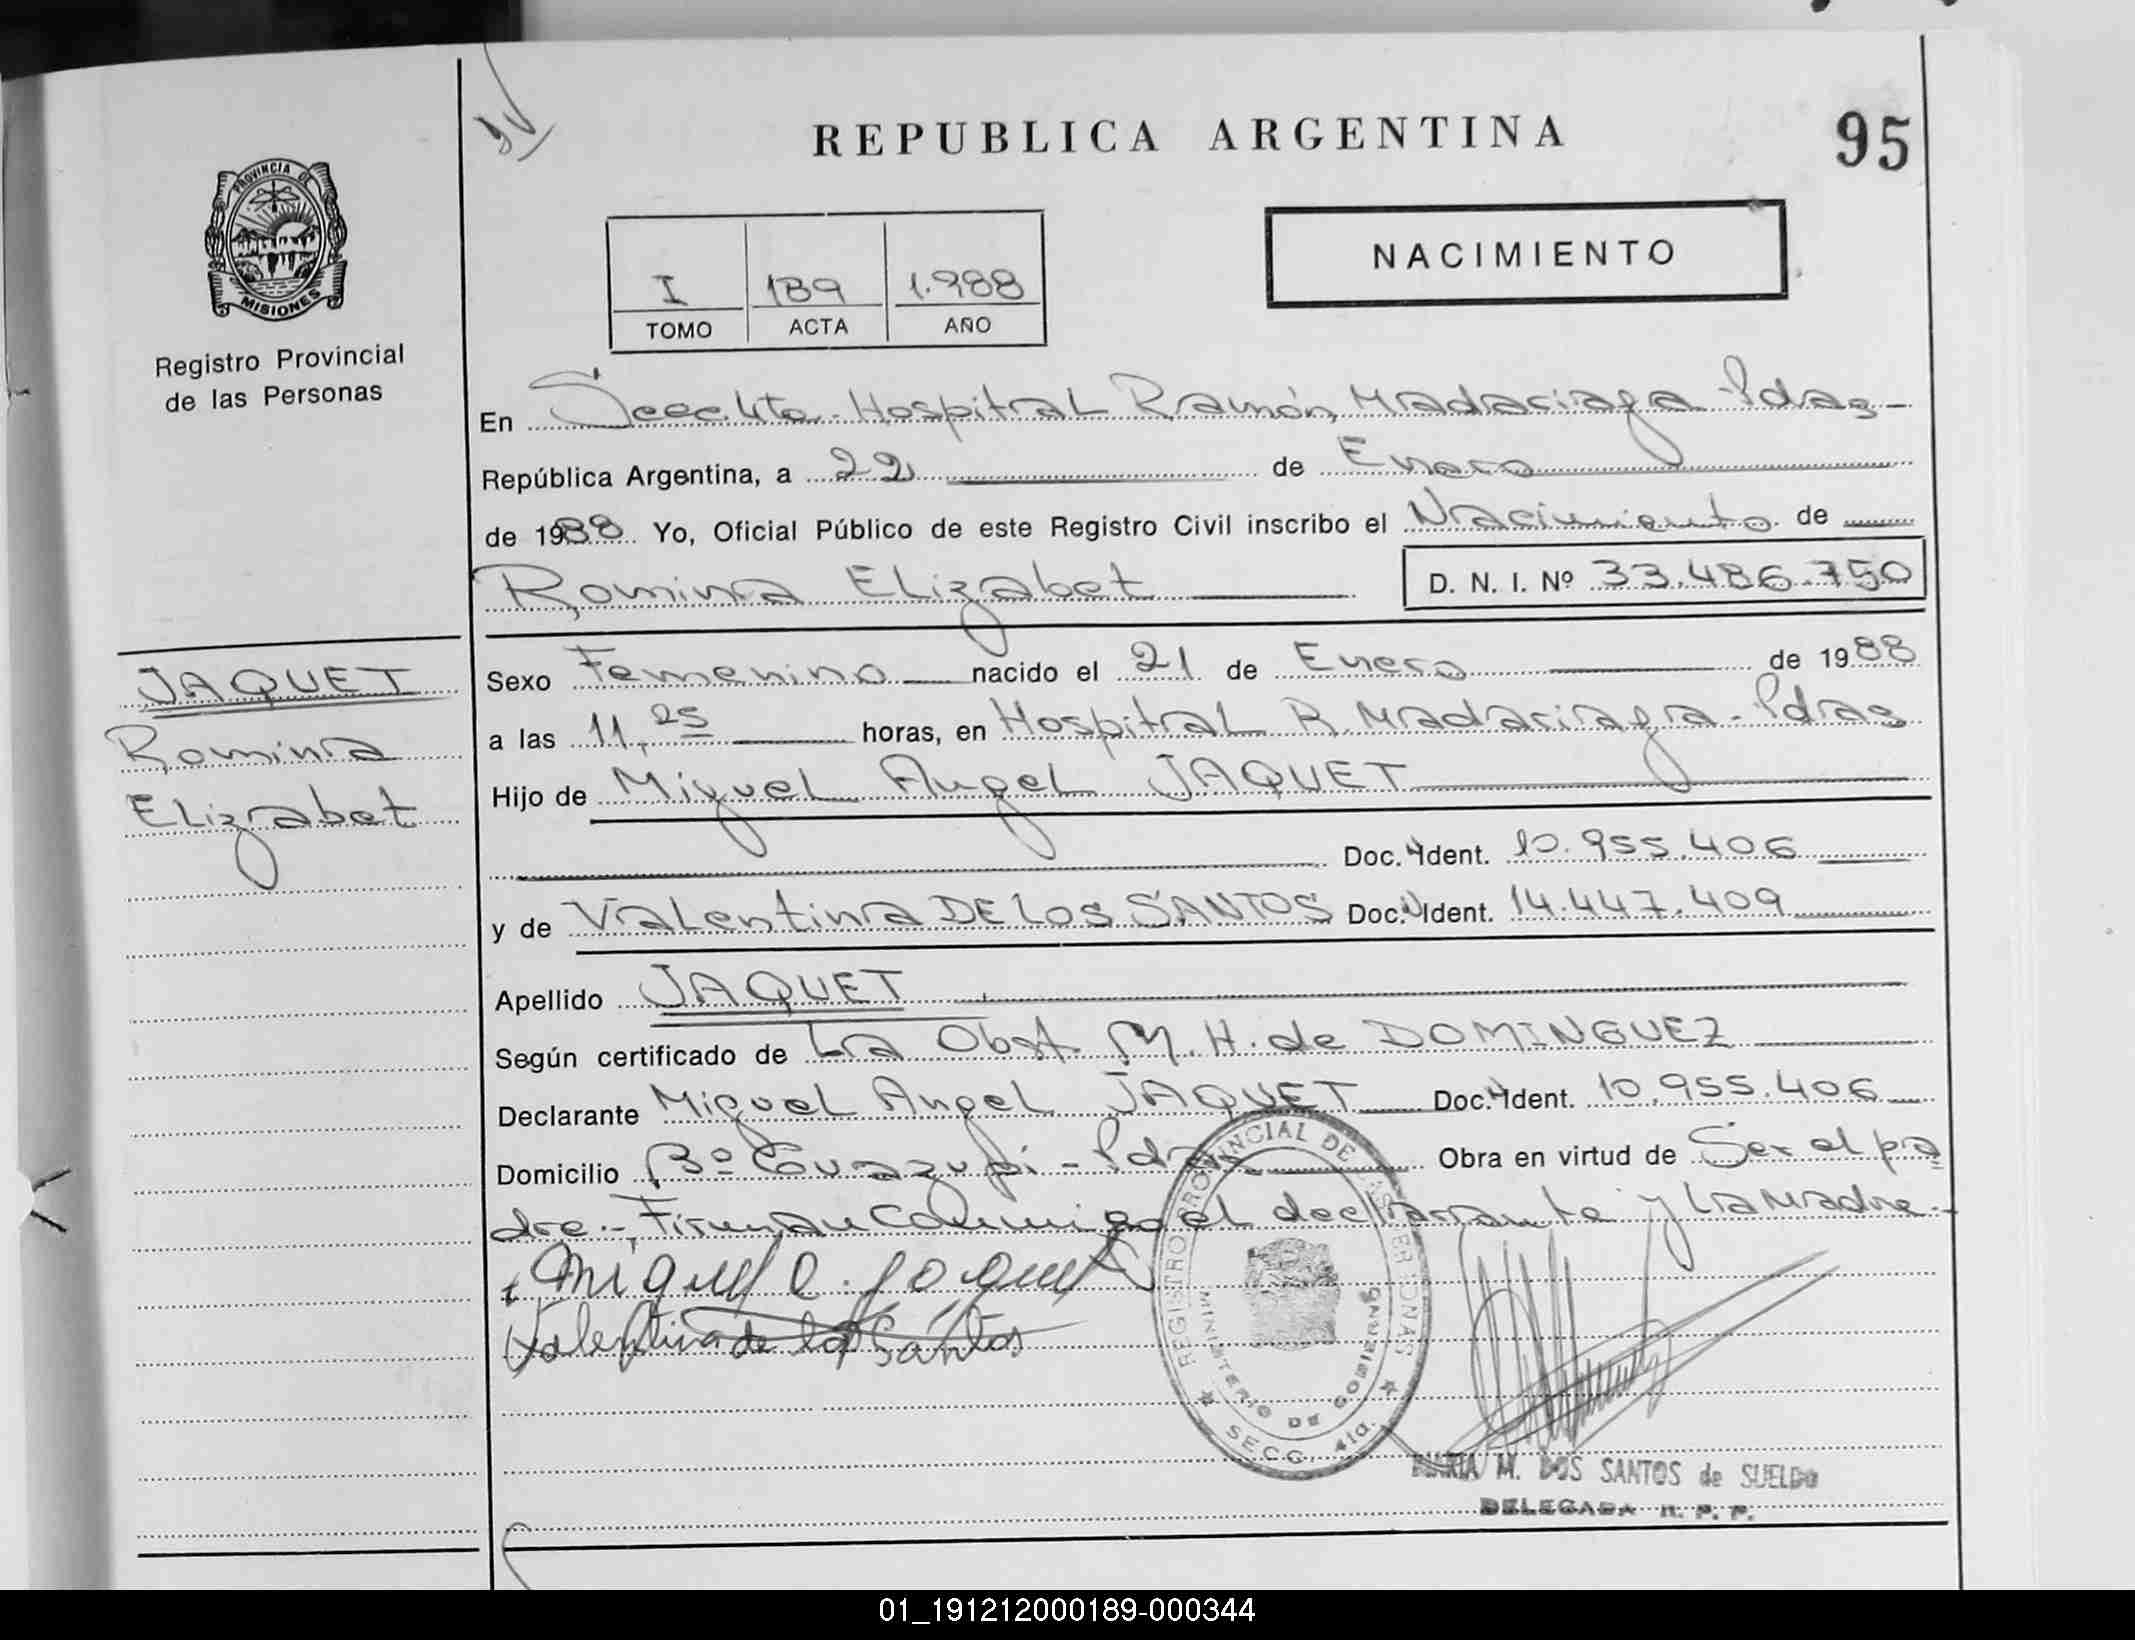 REPUBLICA ARGENTINA
95
PROVINCIA DE
MISIONES
Registro Provincial
de las Personas
NACIMIENTO
I 189 1.988
TOMO ACTA AÑO
En Secc. 4ta. Hospital Ramón Madariaga - Pdas -
República Argentina, a 22 de Enero
de 1988 Yo, Oficial Público de este Registro Civil inscribo el Nacimiento de
Romina Elizabet D. N. I. Nº 33.486.750
JAQUET
Romina
Elizabet
Sexo Femenino nacido el 21 de Enero de 1988
a las 11,25 horas, en Hospital R. Madariaga - Pdas
Hijo de Miguel Angel JAQUET
Doc. Ident. 10.955.406
y de Valentina DE LOS SANTOS Doc. Ident. 14.447.409
Apellido JAQUET
Según certificado de La Obst. M. H. de DOMINGUEZ
Declarante Miguel Angel JAQUET Doc. Ident. 10.955.406
Domicilio Bº - Pdas Obra en virtud de Ser el pa
dre.- Firman Conmigo el declarante y La Madre.-
Miguel A. Jaquet
Valentina de los Santos
REGISTRO PROVINCIAL DE LAS PERSONAS
MINISTERIO DE GOBIERNO
SECC. 4ta.
MARIA M. DOS SANTOS de SUELDO
DELEGADA R. P. P.
01_191212000189-000344